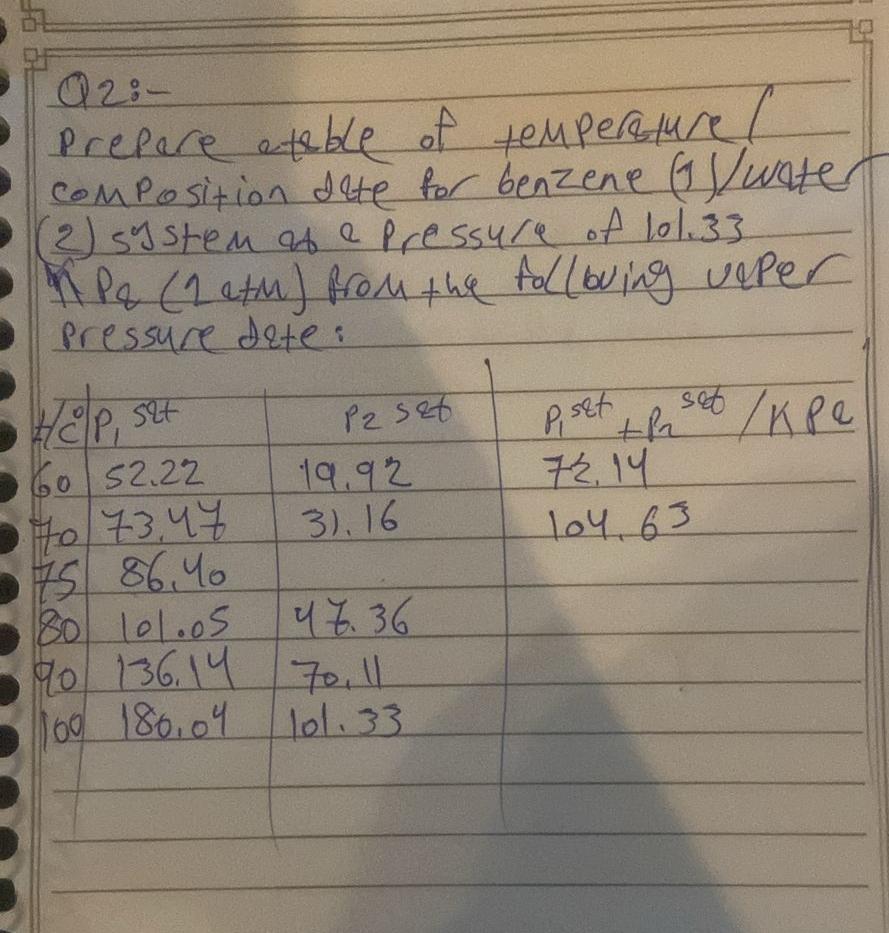 Q2:-
Prepare atable of temperature/
composition date for benzene (1)/water
(2) system at a pressure of 101.33
KPa (1 atm) from the following vaper
pressure date:
t/c° P₁ sat P2 sat P₁ sat + P₂ sat /KPa
60 52.22 19.92 72.14
70 73.47 31.16 104.63
75 86.40
80 101.05 47.36
90 136.14 70.11
100 180.04 101.33